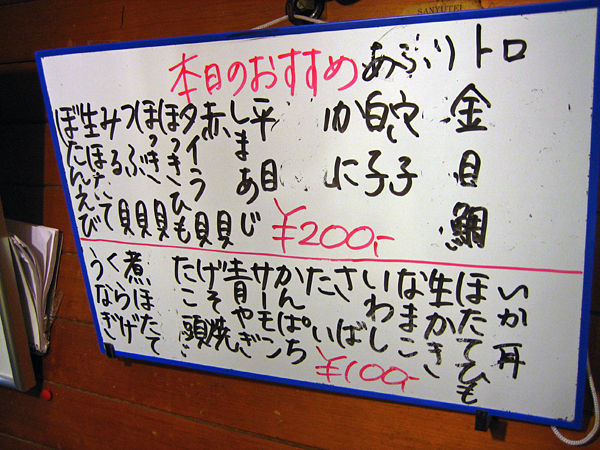 SANYUTEI
本日のおすすめ
あぶりトロ
金目鯛
穴子
白子
かに
平目
しまあじ
赤貝
タイラ貝
ほっきひも
ほっき貝
つぶ貝
みる貝
生ほたて
ぼたんえび
¥200,-
いか耳
ほたてひも
生かき
なまこ
いわし
さば
たい
かんぱち
サーモン
青やぎ
げそ焼
たこ頭
煮ほたて
くらげ
うなぎ
¥100,-